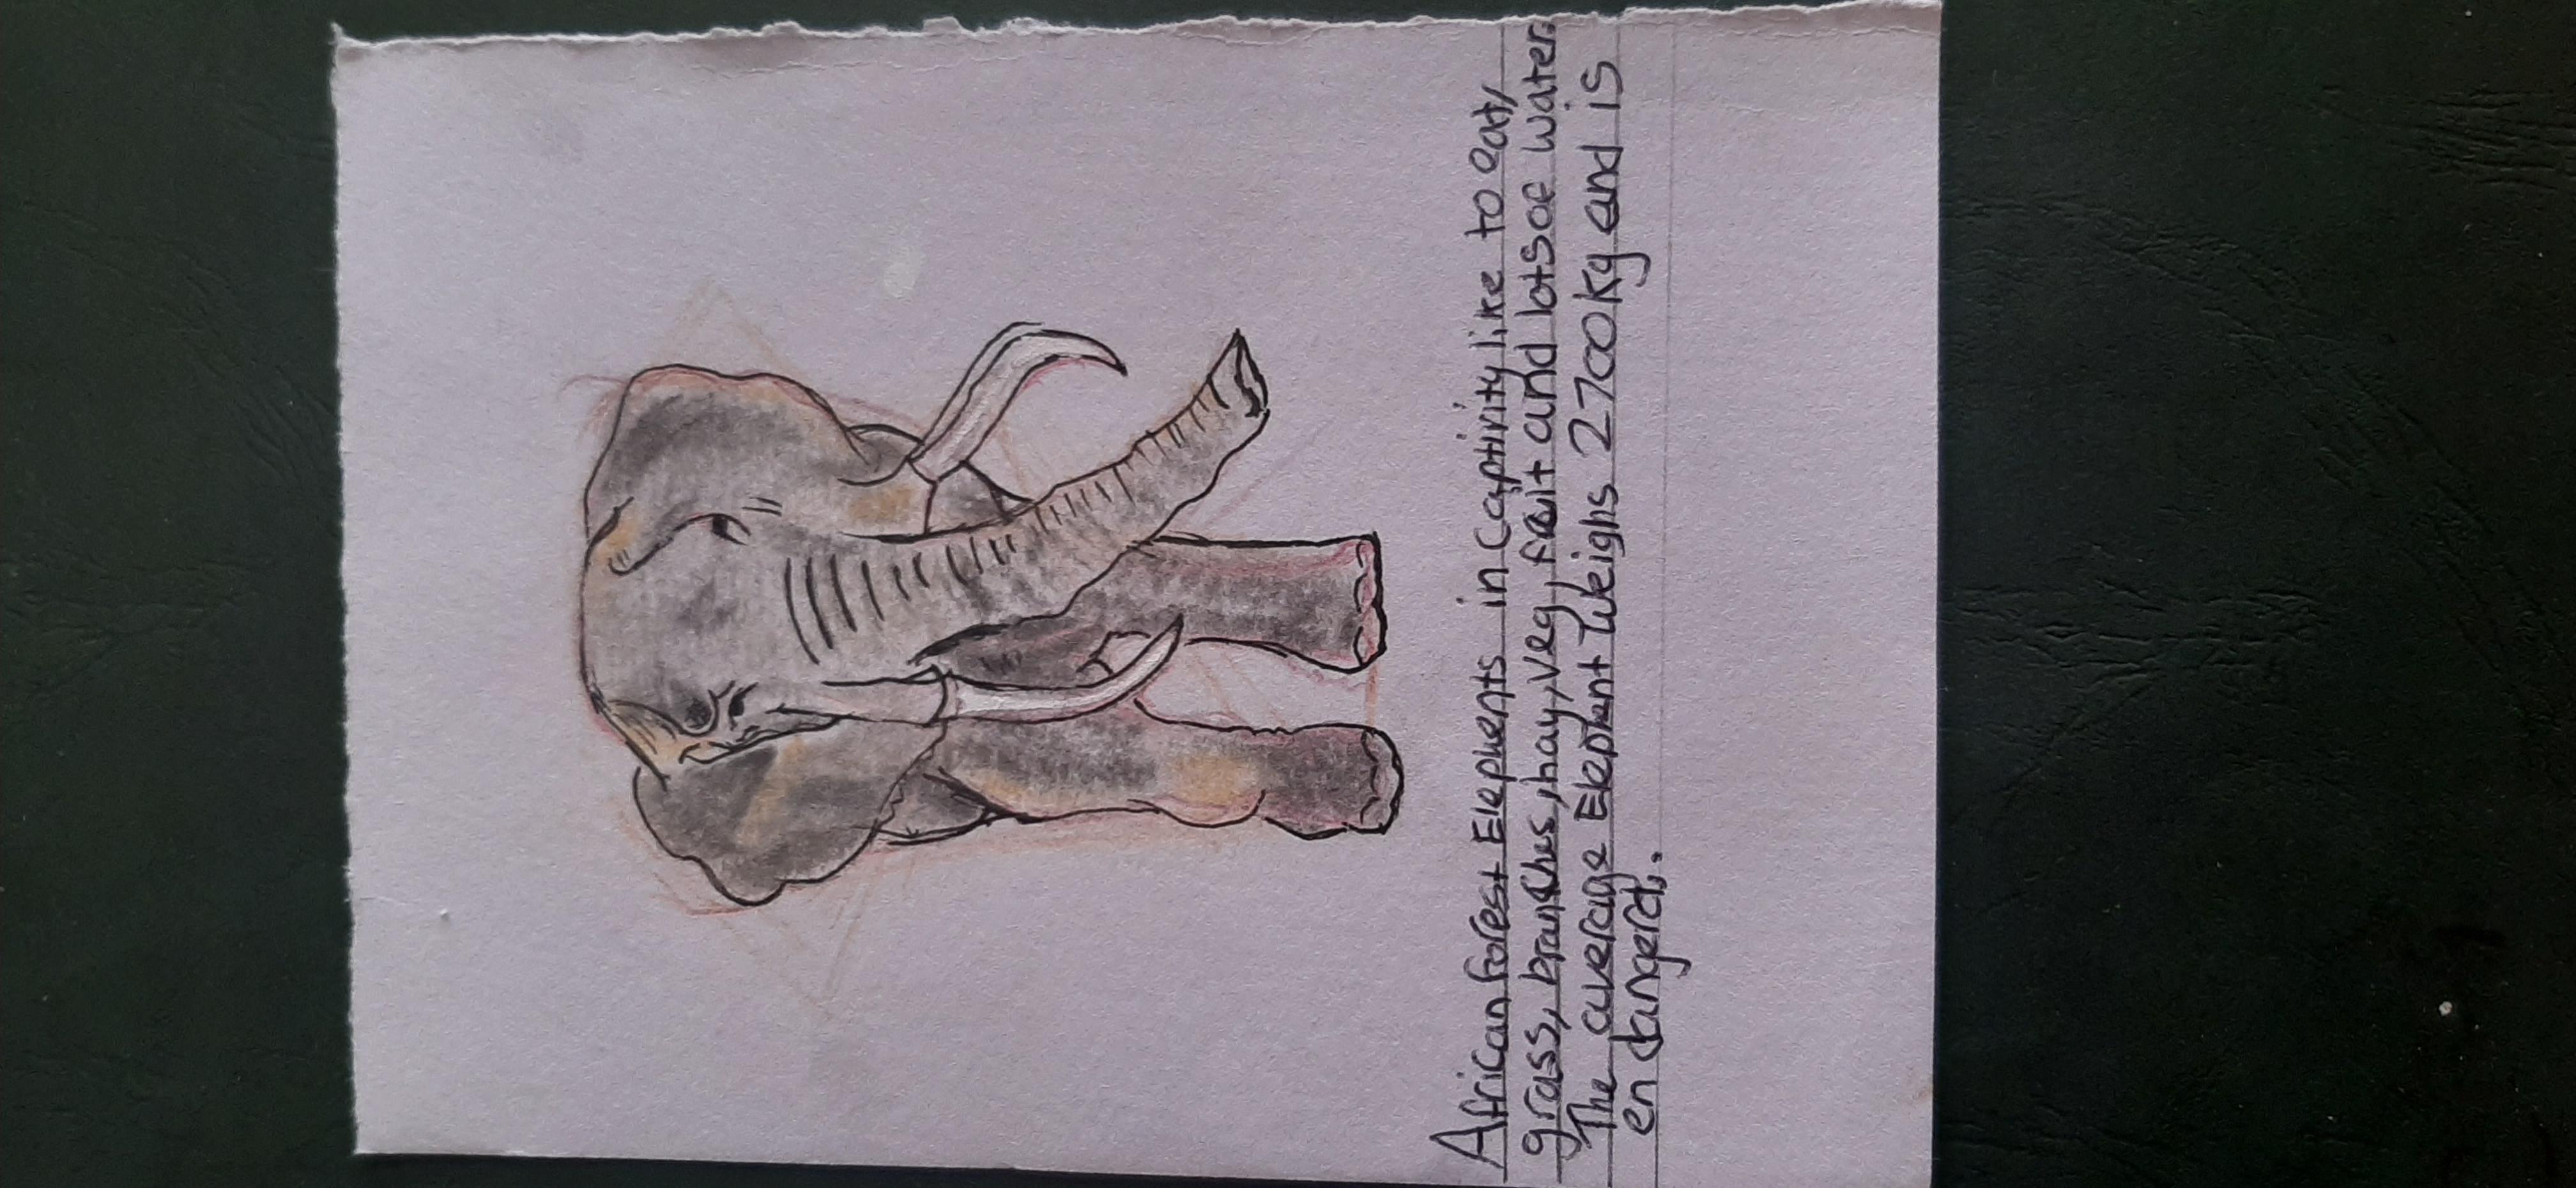 African forest Elephents in captivity like to eat,
grass, branches, hay, veg, fruit and lots of water.
The average Elephant Weighs 2700kg and is
en dangerd.